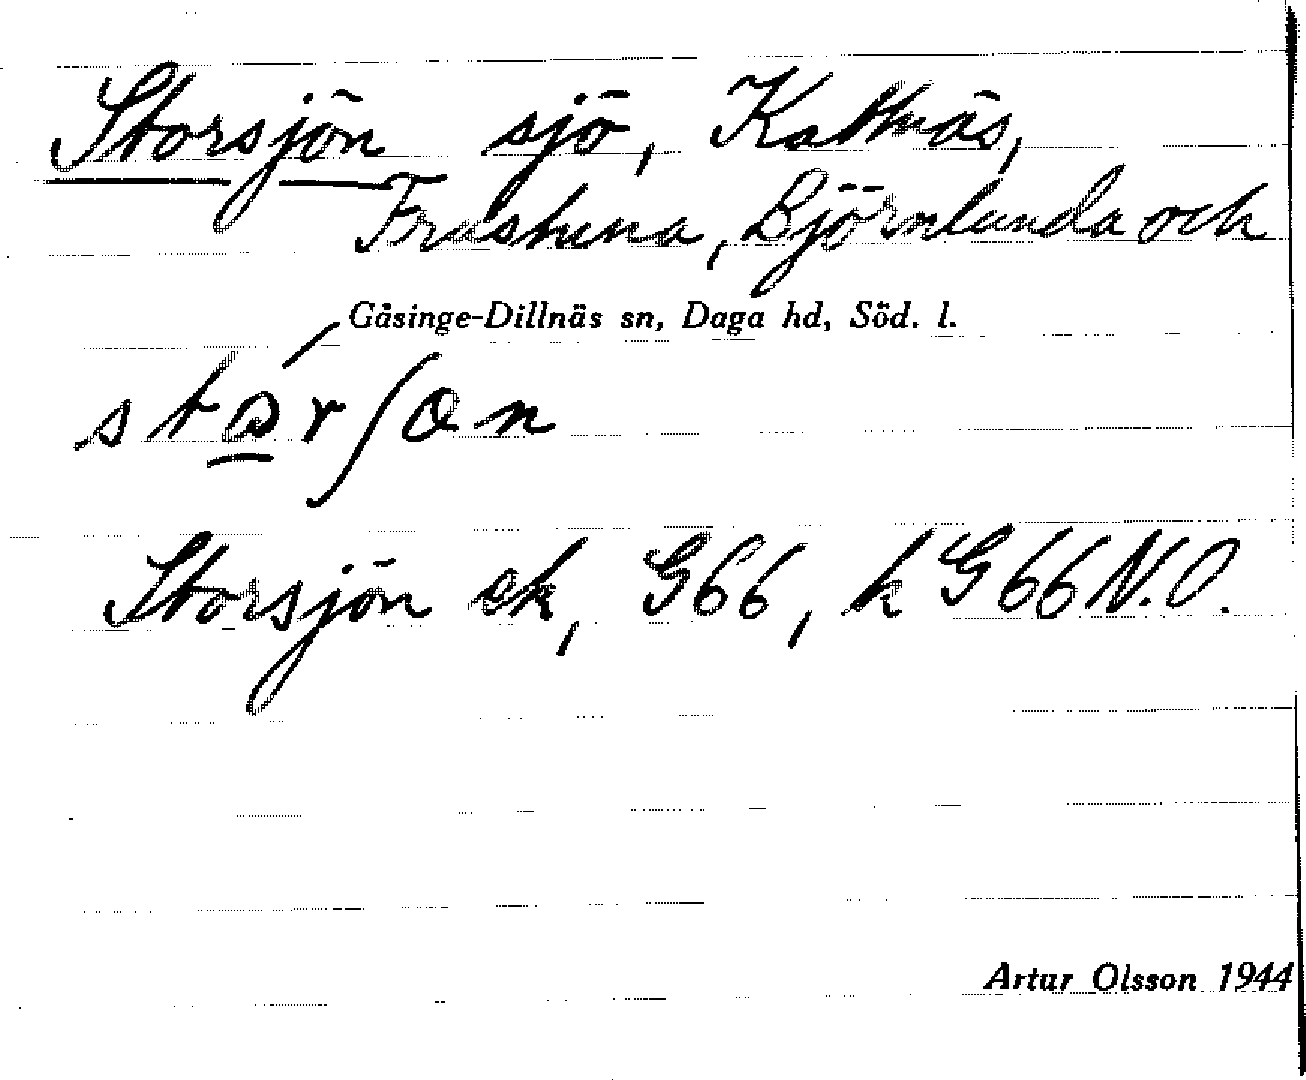 Storsjön sjö, Kattnäs,
Frustuna, Björnlunda och
Gåsinge-Dillnäs sn, Daga hd, Söd. l.
Storsjön ek, G66, h G66 N.O.
Artur Olsson 1944